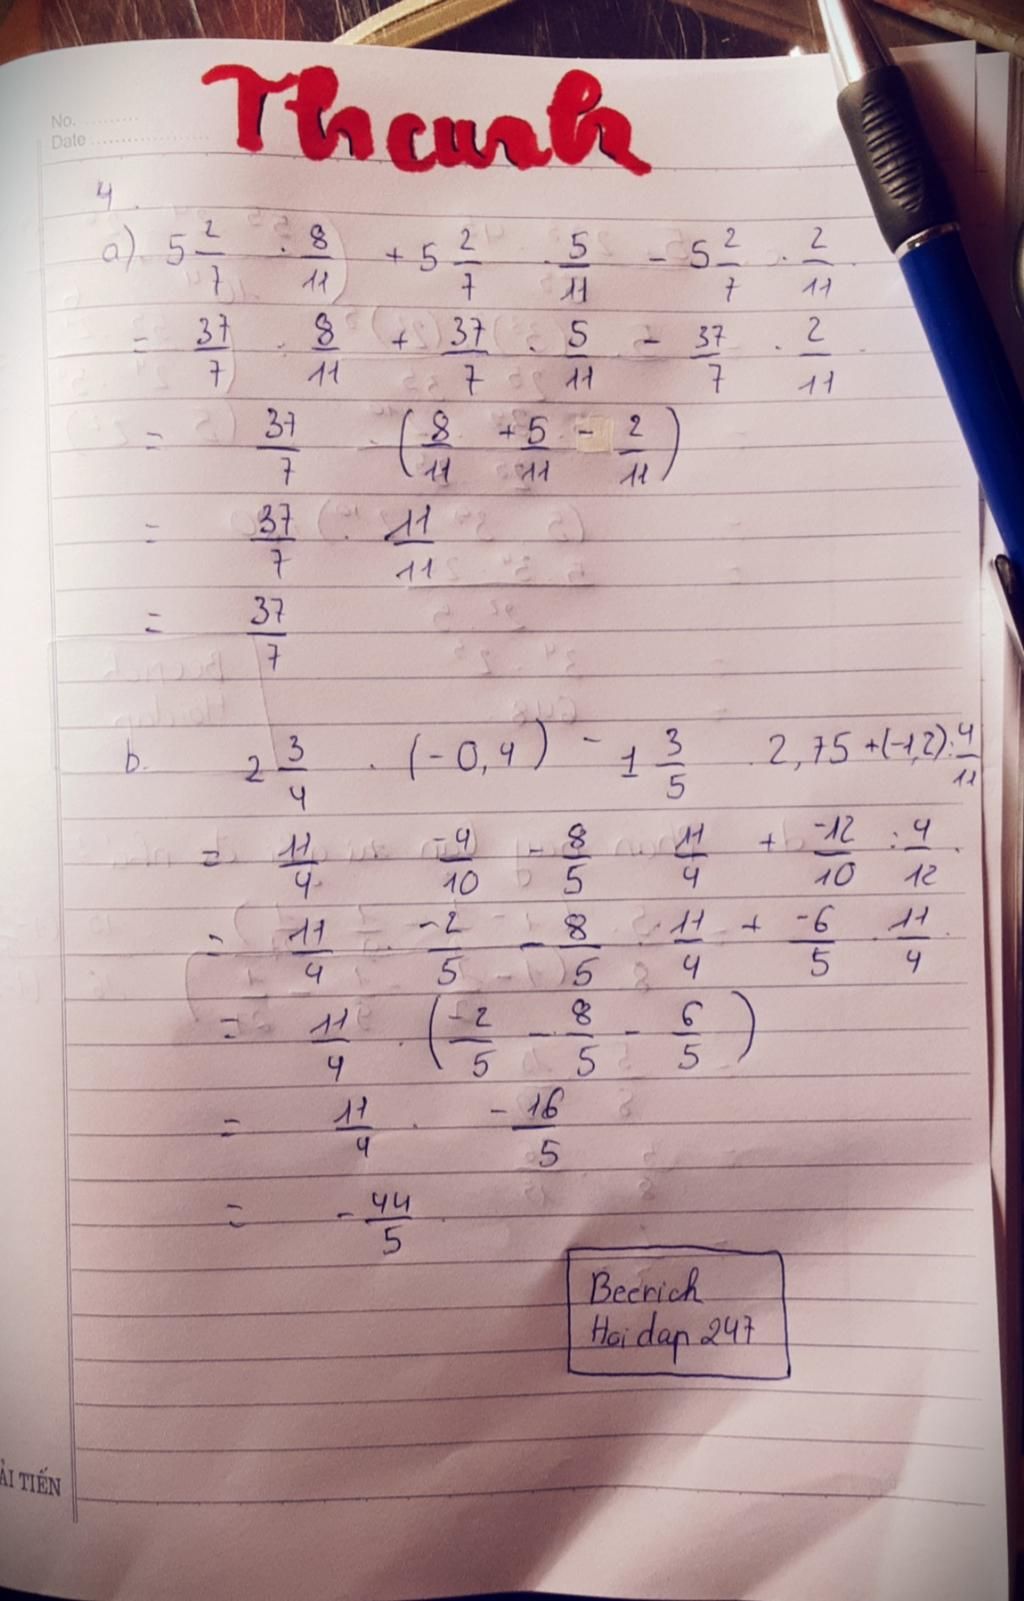 No. ..........
Date ....................
Thcunh
4.
a) 5 2/7 . 8/11 + 5 2/7 . 5/11 - 5 2/7 . 2/11
= 37/7 . 8/11 + 37/7 . 5/11 - 37/7 . 2/11
= 37/7 . (8/11 + 5/11 - 2/11)
= 37/7 . 11/11
= 37/7
b. 2 3/4 . (-0,4) - 1 3/5 . 2,75 + (-1,2) : 4/11
= 11/4 . -4/10 - 8/5 . 11/4 + -12/10 : 4/12
= 11/4 . -2/5 - 8/5 . 11/4 + -6/5 . 11/4
= 11/4 . (-2/5 - 8/5 - 6/5)
= 11/4 . -16/5
= -44/5
Beerich
Hoi dap 247
ẢI TIẾN